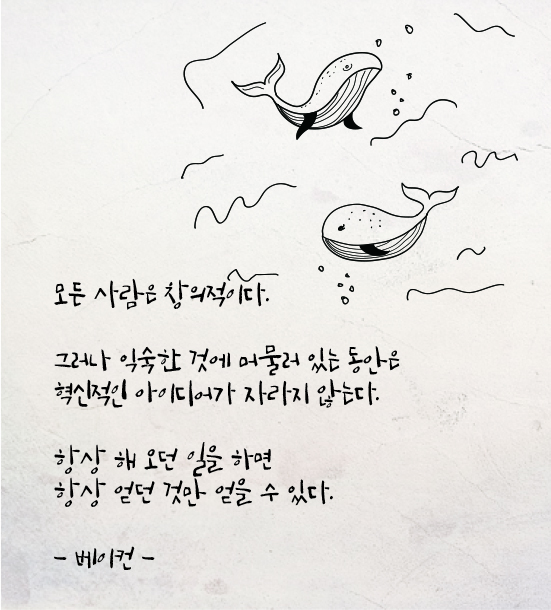 모든 사람은 창의적이다.
그러나 익숙한 것에 머물러 있는 동안은
혁신적인 아이디어가 자라지 않는다.
항상 해 오던 일을 하면
항상 얻던 것만 얻을 수 있다.
- 베이컨 -